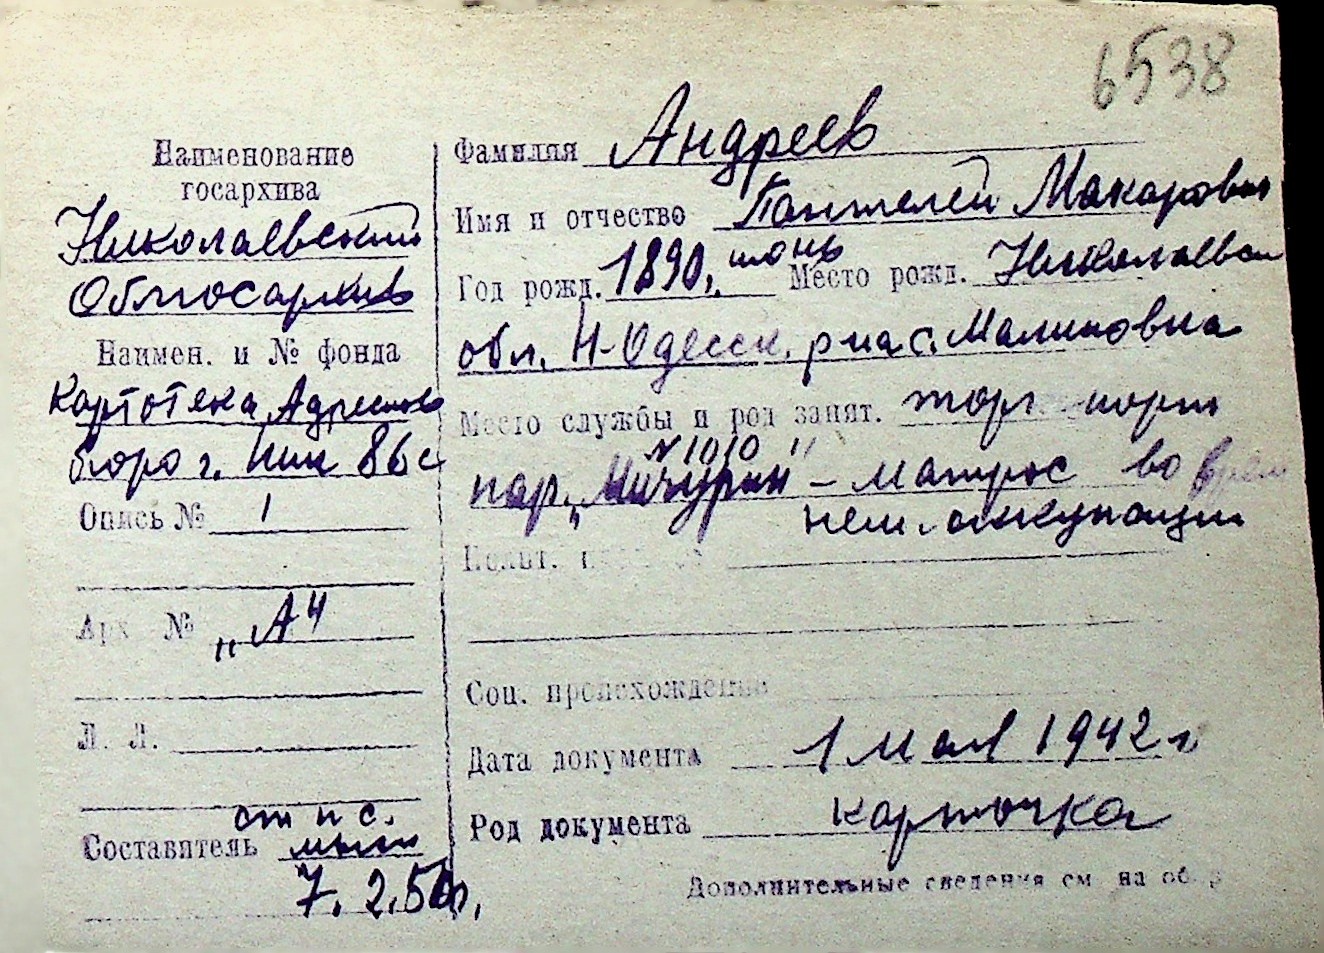 6538
Наименование
госархива
Николаевский
Облгосархив
Наимен. и № фонда
Картотека Адресного
бюро г. Ник 86с
Опись № 1
Арх №  „А"
Л. Л.
от п с.
Составитель
7. 2.50г.
Фамилия Андреев
Имя и отчество Пантелей Макарович
Год рожд. 1890, июнь Место рожд. Николаевск
обл. Н-Одесск. р на с. Малиновка
Место службы и род занят. торг порт
№ 1010
пар. „Мичурин" – матрос во врем
нем. оккупации
Полит.
Соц. происхождение
Дата документа 1 мая 1942 г
Род документа карточка
Дополнительные сведения см на об р